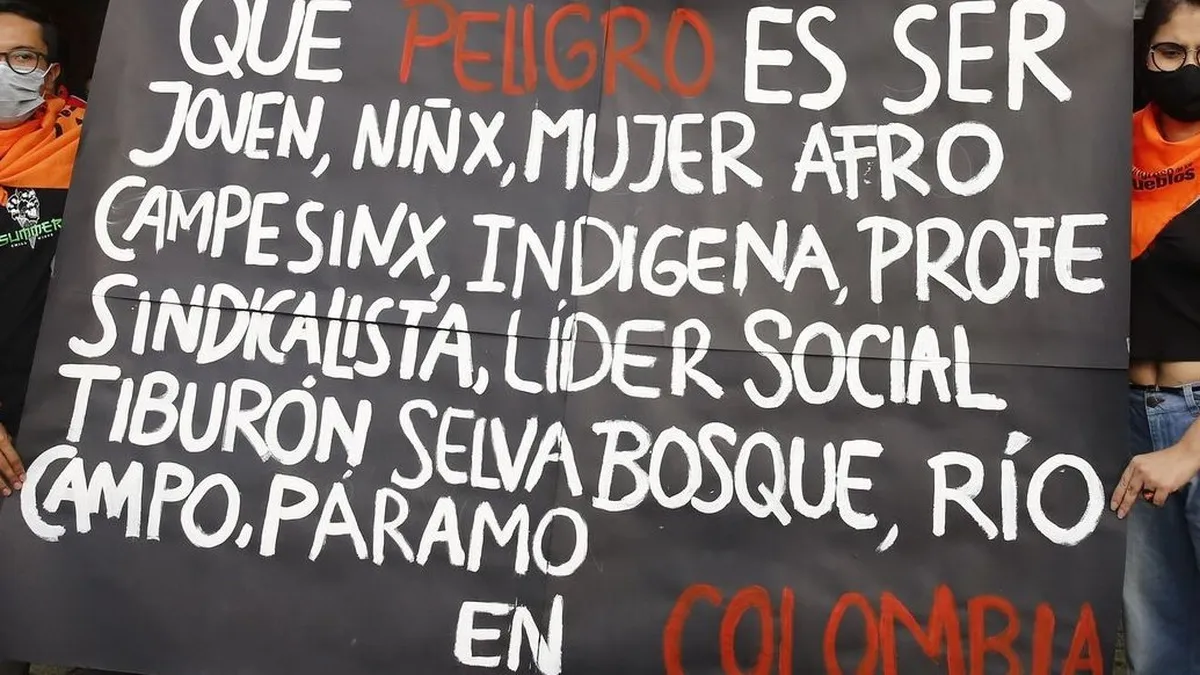 QUE PELIGRO ES SER
JOVEN, NIÑX, MUJER AFRO
CAMPESINX, INDIGENA, PROFE
SINDICALISTA, LÍDER SOCIAL
TIBURÓN SELVA BOSQUE, RÍO
CAMPO, PÁRAMO
EN COLOMBIA
SUMMER
Pueblos